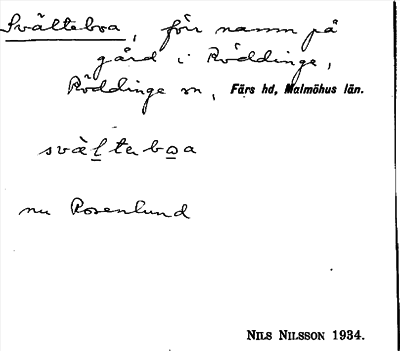 Svälteboa, förr namn på
gård i Röddinge,
Röddinge sn, Färs hd, Malmöhus län.
svälteboa
nu Rosenlund
NILS NILSSON 1934.